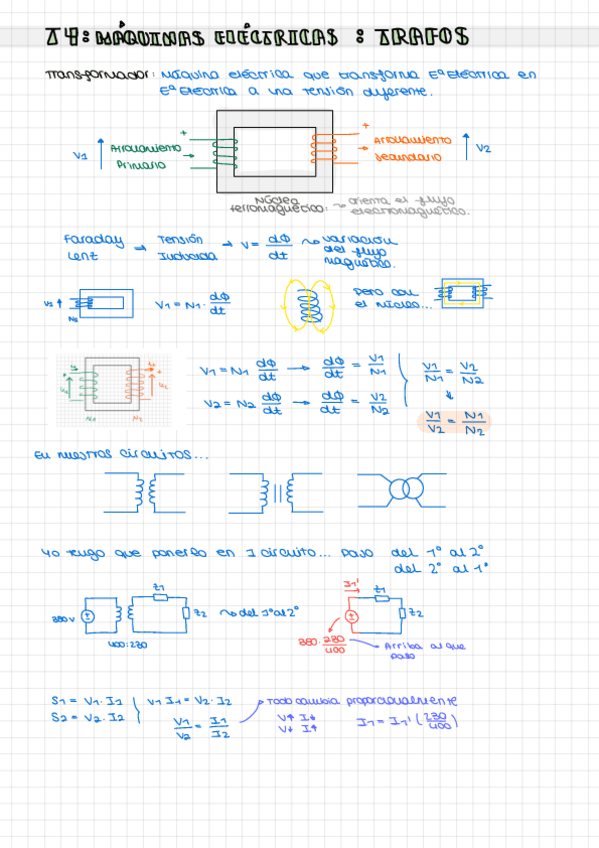 T4: MÁQUINAS ELÉCTRICAS : TRAFOS
Transformador: Máquina eléctrica que transforma Eª Eléctrica en
Eª Eléctrica a una tensión diferente.
V1
+
Arrollamiento
Primario
+
Arrollamiento
Secundario
V2
Núcleo
ferromagnético: ~ orienta el flujo
electromagnético.
Faraday
Lenz
→ Tensión
Inducida
→ V = dΦ/dt
~ variación
del flujo
magnético.
V1
N1
V1 = N1 · dΦ/dt
pero con
el núcleo...
N1
N2
V1 = N1 dΦ/dt → dΦ/dt = V1/N1
V2 = N2 dΦ/dt → dΦ/dt = V2/N2
V1/N1 = V2/N2
V1/V2 = N1/N2
En nuestros circuitos...
Yo tengo que ponerlo en 1 circuito... paso del 1º al 2º
del 2º al 1º
380 V
400:230
Z1
Z2
~ del 1º al 2º
I1'
Z1
Z2
380 · 230/400
Arriba al que
paso
S1 = V1 · I1
S2 = V2 · I2
V1 I1 = V2 · I2
V1/V2 = I1/I2
Todo cambia proporcionalmente
V↑ I↓
V↓ I↑
I1 = I1' (230/400)